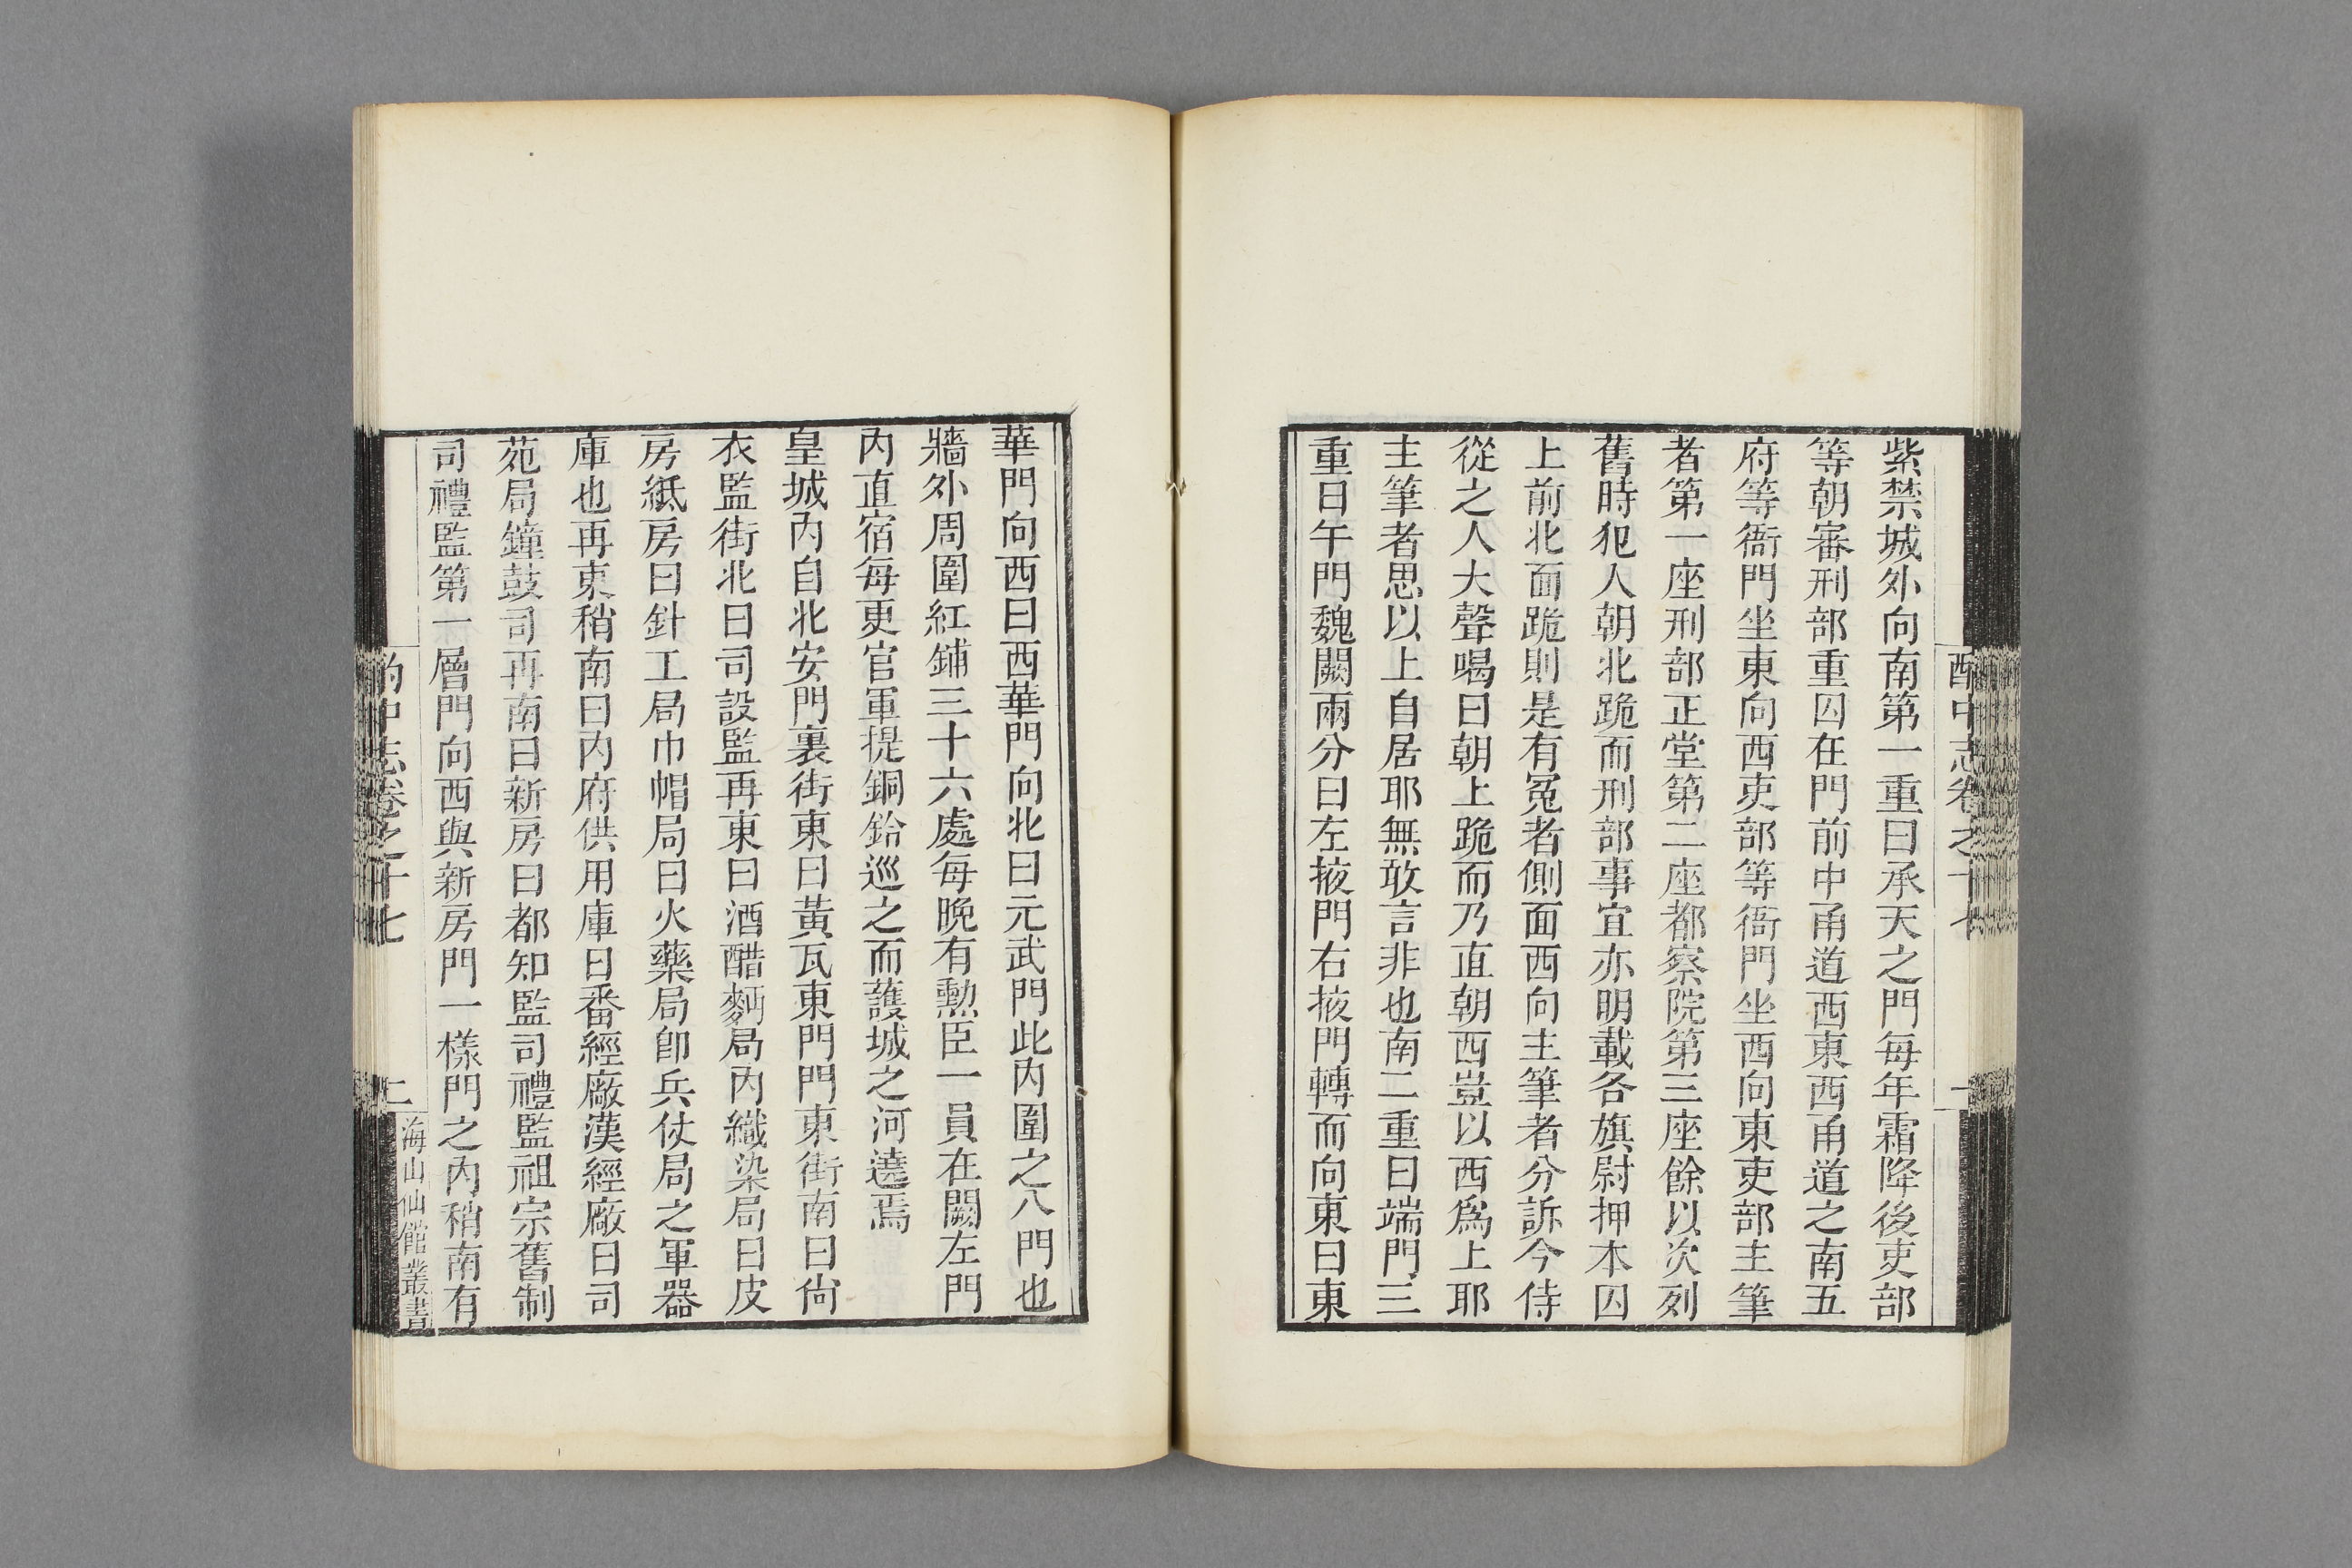 酌中志卷之十七
一
紫禁城外向南第一重曰承天之門每年霜降後吏部
等朝審刑部重囚在門前中甬道西東西甬道之南五
府等衙門坐東向西吏部等衙門坐西向東吏部主筆
者第一座刑部正堂第二座都察院第三座餘以次列
舊時犯人朝北跪而刑部事宜亦明載各旗尉押本囚
上前北面跪則是有冤者側面西向主筆者分訴今侍
從之人大聲喝曰朝上跪而乃直朝西豈以西爲上耶
主筆者思以上自居耶無敢言非也南二重曰端門三
重曰午門魏闕兩分曰左掖門右掖門轉而向東曰東
華門向西曰西華門向北曰元武門此內圍之八門也
牆外周圍紅鋪三十六處每晚有勲臣一員在闕左門
內直宿每更官軍提銅鈴巡之而護城之河遶焉
皇城內自北安門裏街東曰黃瓦東門門東街南曰尙
衣監街北曰司設監再東曰酒醋麪局內織染局曰皮
房紙房曰針工局巾帽局曰火藥局卽兵仗局之軍器
庫也再東稍南曰內府供用庫曰番經廠漢經廠曰司
苑局鐘鼓司再南曰新房曰都知監司禮監祖宗舊制
司禮監第一層門向西與新房門一樣門之內稍南有
酌中志卷之十七
二
海山仙館叢書